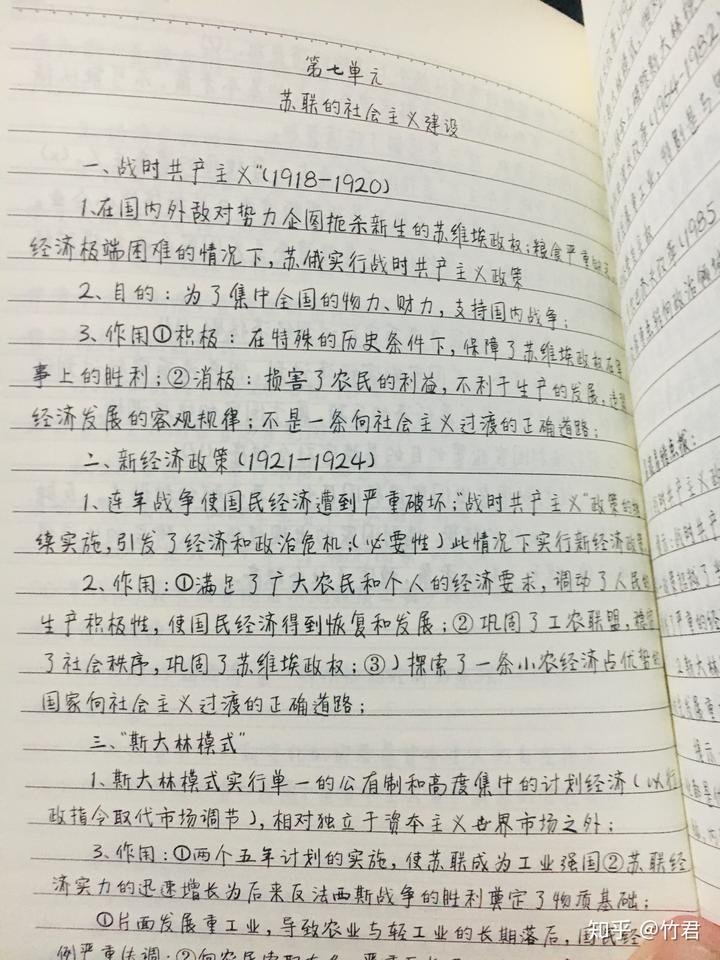 第七单元
苏联的社会主义建设
一、战时共产主义"(1918-1920)
1、在国内外敌对势力企图扼杀新生的苏维埃政权；粮食严重
经济极端困难的情况下，苏俄实行战时共产主义政策
2、目的：为了集中全国的物力、财力，支持国内战争；
3、作用①积极：在特殊的历史条件下，保障了苏维埃政权在军
事上的胜利；②消极：损害了农民的利益，不利于生产的发展，违背
经济发展的客观规律；不是一条向社会主义过渡的正确道路；
二、新经济政策(1921-1924)
1、连年战争使国民经济遭到严重破坏；"战时共产主义"政策的继
续实施，引发了经济和政治危机；(必要性)此情况下实行新经济政策
2、作用：①满足了广大农民和个人的经济要求，调动了人民的
生产积极性，使国民经济得到恢复和发展；②巩固了工农联盟，稳定
了社会秩序，巩固了苏维埃政权；③)探索了一条小农经济占优势的
国家向社会主义过渡的正确道路；
三、"斯大林模式"
1、斯大林模式实行单一的公有制和高度集中的计划经济(以行
政指令取代市场调节)，相对独立于资本主义世界市场之外；
3、作用：①两个五年计划的实施，使苏联成为工业强国②苏联经
济实力的迅速增长为后来反法西斯战争的胜利奠定了物质基础；
①片面发展重工业，导致农业与轻工业的长期落后，国民经
例严重失调；②向农民
知乎 @竹君
(1964-1982
(1985